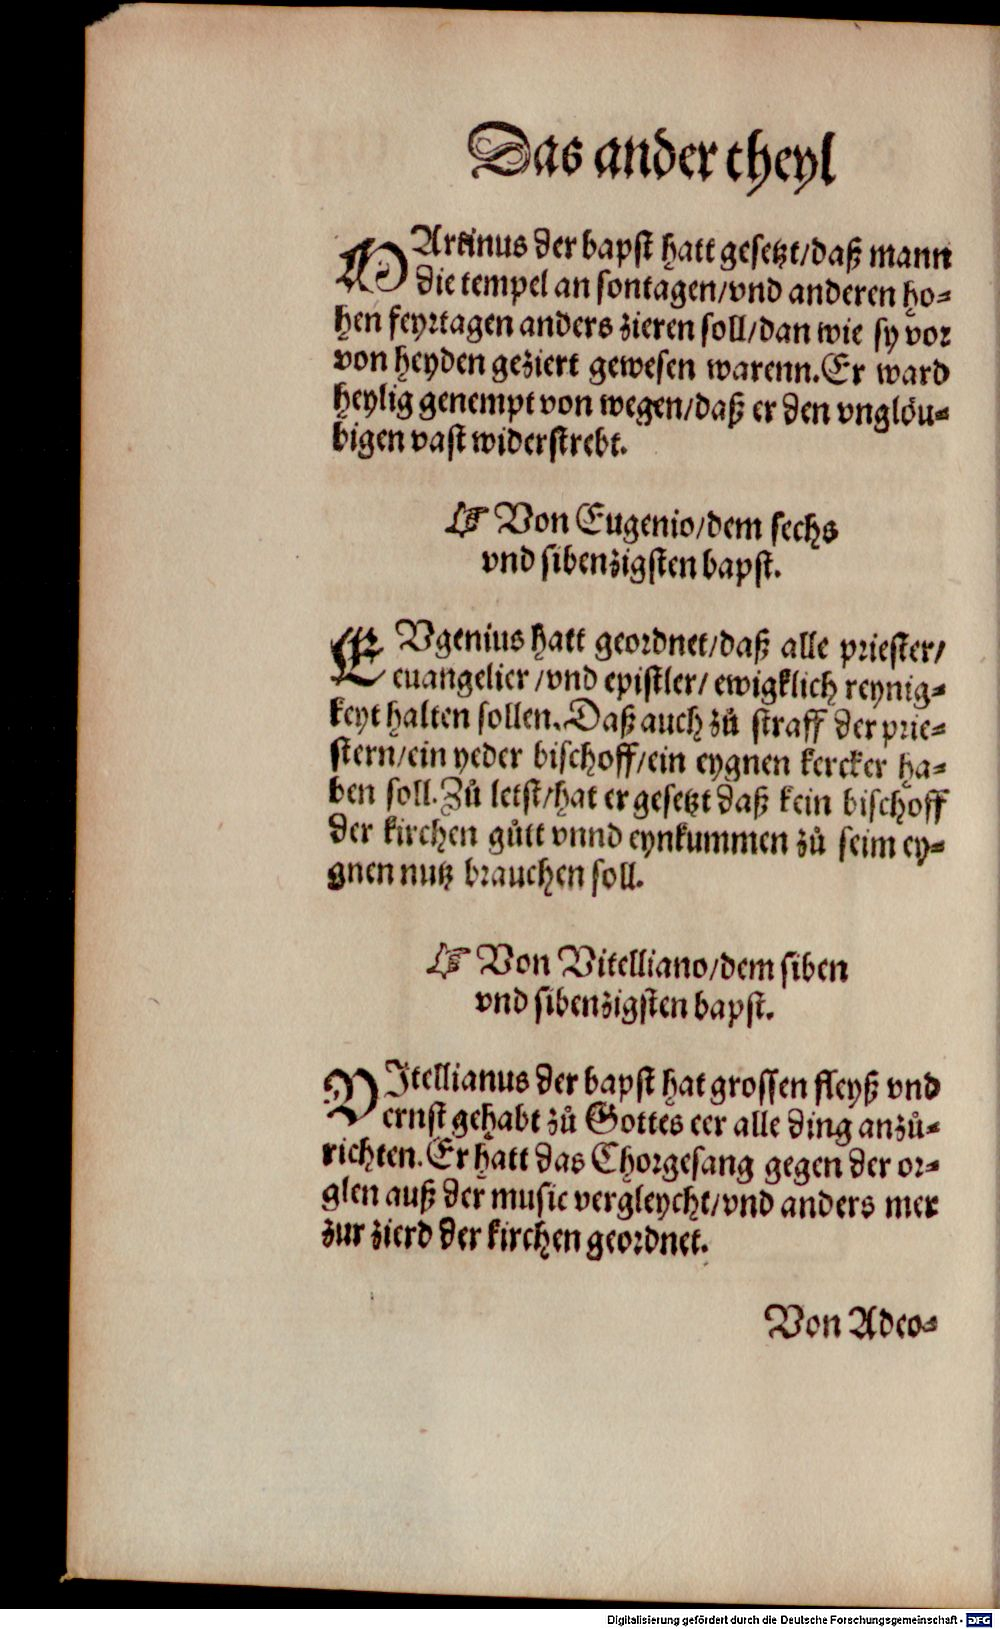 Das ander theyl
MArtinus der bapst hatt gesetzt/daß mann
die tempel an sontagen/vnd anderen ho⸗
hen feyrtagen anders zieren soll/dan wie sy vor
von heyden geziert gewesen warenn.Er ward
heylig genempt von wegen/daß er den vnglöu⸗
bigen vast widerstrebt.
☞ Von Eugenio/dem sechs
vnd sibenzigsten bapst.
EVgenius hatt geordnet/daß alle priester/
euangelier/vnd epistler/ewigklich reynig⸗
keyt halten sollen.Daß auch zů straff der prie⸗
stern/ein yeder bischoff/ein eygnen kercker ha⸗
ben soll.Zů letst/hat er gesetzt daß kein bischoff
der kirchen gůtt vnnd eynkummen zů seim ey⸗
gnen nutz brauchen soll.
☞ Von Vitelliano/dem siben
vnd sibenzigsten bapst.
VItellianus der bapst hat grossen fleyß vnd
ernst gehabt zů Gottes eer alle ding anzů⸗
richten.Er hatt das Chorgesang gegen der or⸗
glen auß der music vergleycht/vnd anders mer
zur zierd der kirchen geordnet.
Von Adeo⸗
Digitalisierung gefördert durch die Deutsche Forschungsgemeinschaft - DFG